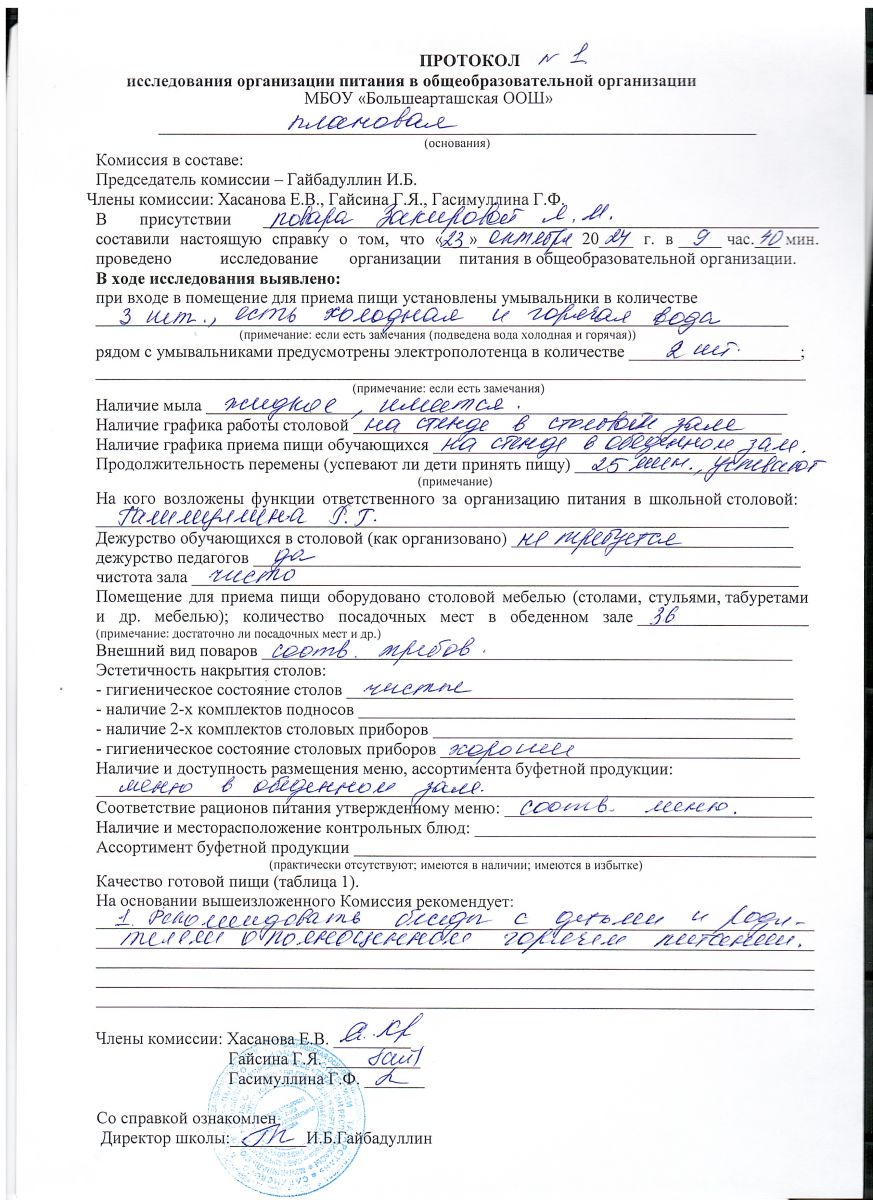 ПРОТОКОЛ № 1
исследования организации питания в общеобразовательной организации
МБОУ «Большеарташская ООШ»
плановая
(основания)
Комиссия в составе:
Председатель комиссии – Гайбадуллин И.Б.
Члены комиссии: Хасанова Е.В., Гайсина Г.Я., Гасимуллина Г.Ф.
В присутствии повара Закировой Л.М.
составили настоящую справку о том, что «23» октября 2024 г. в 9 час. 40 мин.
проведено исследование организации питания в общеобразовательной организации.
В ходе исследования выявлено:
при входе в помещение для приема пищи установлены умывальники в количестве
3 шт., есть холодная и горячая вода
(примечание: если есть замечания (подведена вода холодная и горячая))
рядом с умывальниками предусмотрены электрополотенца в количестве 2 шт. ;
(примечание: если есть замечания)
Наличие мыла жидкое, имеется.
Наличие графика работы столовой на стенде в столовом зале
Наличие графика приема пищи обучающихся на стенде в обеденном зале.
Продолжительность перемены (успевают ли дети принять пищу) 25 мин., успевают
(примечание)
На кого возложены функции ответственного за организацию питания в школьной столовой:
Р.Г.
Дежурство обучающихся в столовой (как организовано) не требуется
дежурство педагогов да
чистота зала чисто
Помещение для приема пищи оборудовано столовой мебелью (столами, стульями, табуретами
и др. мебелью); количество посадочных мест в обеденном зале 36
(примечание: достаточно ли посадочных мест и др.)
Внешний вид поваров соотв. требов.
Эстетичность накрытия столов:
- гигиеническое состояние столов чистые
- наличие 2-х комплектов подносов
- наличие 2-х комплектов столовых приборов
- гигиеническое состояние столовых приборов хорошии
Наличие и доступность размещения меню, ассортимента буфетной продукции:
меню в обеденном зале.
Соответствие рационов питания утвержденному меню: соотв. меню.
Наличие и месторасположение контрольных блюд:
Ассортимент буфетной продукции
(практически отсутствуют; имеются в наличии; имеются в избытке)
Качество готовой пищи (таблица 1).
На основании вышеизложенного Комиссия рекомендует:
1. Рекомендовать беседы с детьми и роди-
телями о полноценном горячем питании.
Члены комиссии: Хасанова Е.В.
Гайсина Г.Я.
Гасимуллина Г.Ф.
Со справкой ознакомлен
Директор школы: И.Б.Гайбадуллин